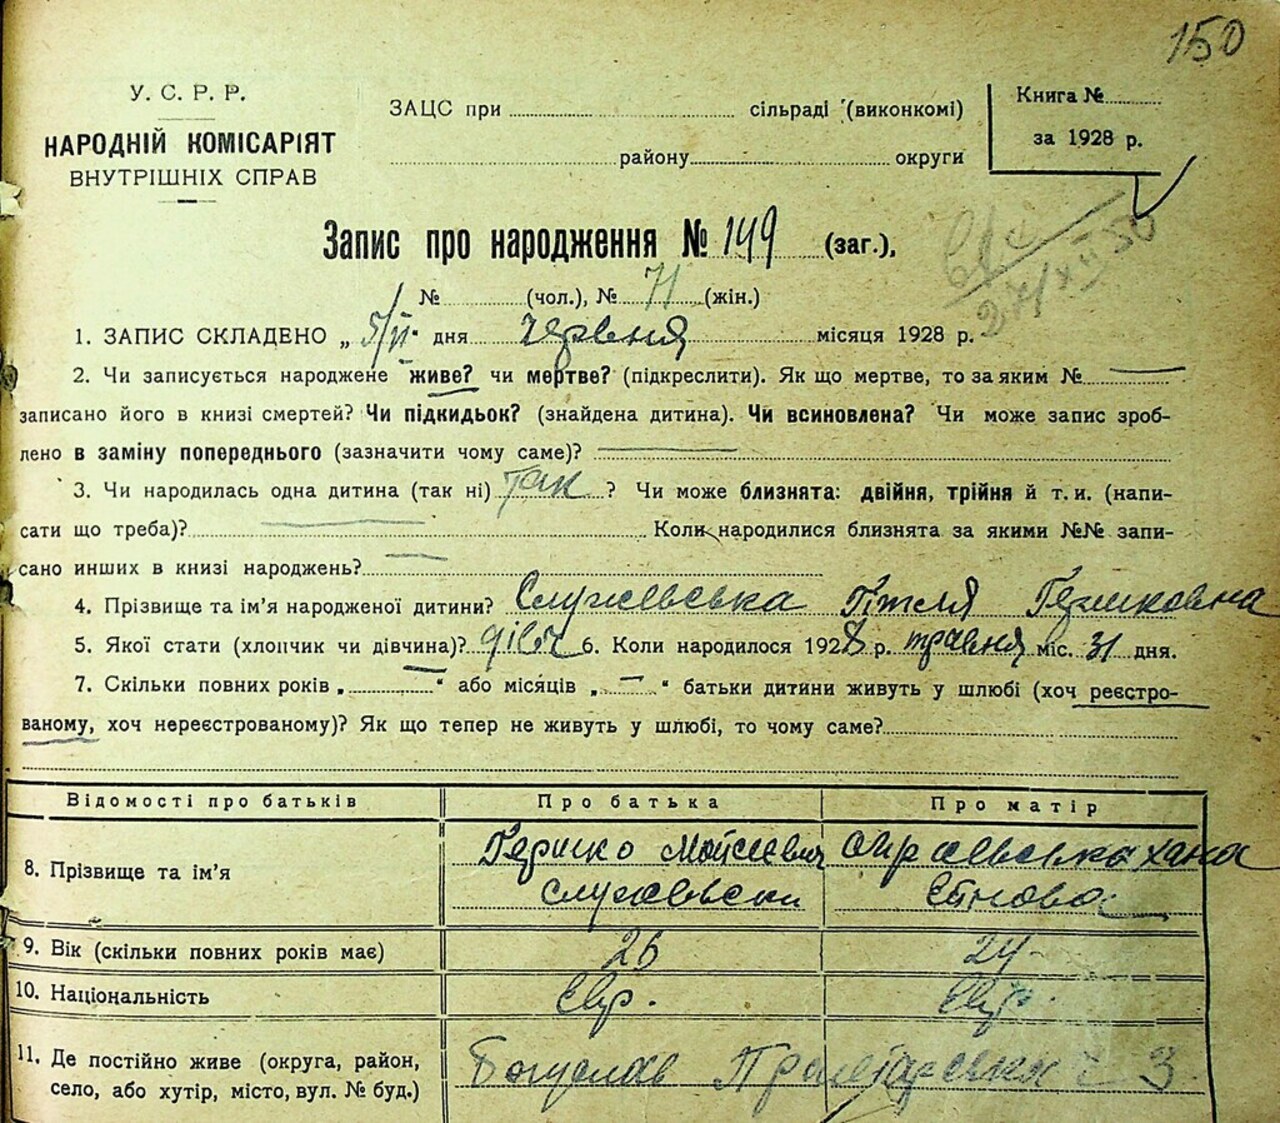 150
У. С. Р. Р.
НАРОДНІЙ КОМІСАРІЯТ
ВНУТРІШНІХ СПРАВ
ЗАЦС при сільраді (виконкомі)
району округи
Книга №
за 1928 р.
Запис про народження № 149 (заг.),
№ (чол.), № 71 (жін.)
27/XII 50
1. ЗАПИС СКЛАДЕНО „ 5/VI дня червня місяця 1928 р.
2. Чи записується народжене живе? чи мертве? (підкреслити). Як що мертве, то за яким №
записано його в книзі смертей? Чи підкидьок? (знайдена дитина). Чи всиновлена? Чи може запис зроб-
лено в заміну попереднього (зазначити чому саме)?
3. Чи народилась одна дитина (так ні) так ? Чи може близнята: двійня, трійня й т. и. (напи-
сати що треба)? Коли народилися близнята за якими №№ запи-
сано инших в книзі народжень?
4. Прізвище та ім’я народженої дитини? Служевська Гітля Гершковна
5. Якої стати (хлопчик чи дівчина)? дівч 6. Коли народилося 1928 р. травня міс. 31 дня.
7. Скільки повних років „ “ або місяців „ “ батьки дитини живуть у шлюбі (хоч реєстро-
ваному, хоч нереєстрованому)? Як що тепер не живуть у шлюбі, то чому саме?
Відомості про батьків Про батька Про матір
8. Прізвище та ім’я Гершко Мойсеевич Служевськи хана
9. Вік (скільки повних років має) 26 24
10. Національність Евр. Евр.
11. Де постійно живе (округа, район,
село, або хутір, місто, вул. № буд.) Богуслав 3